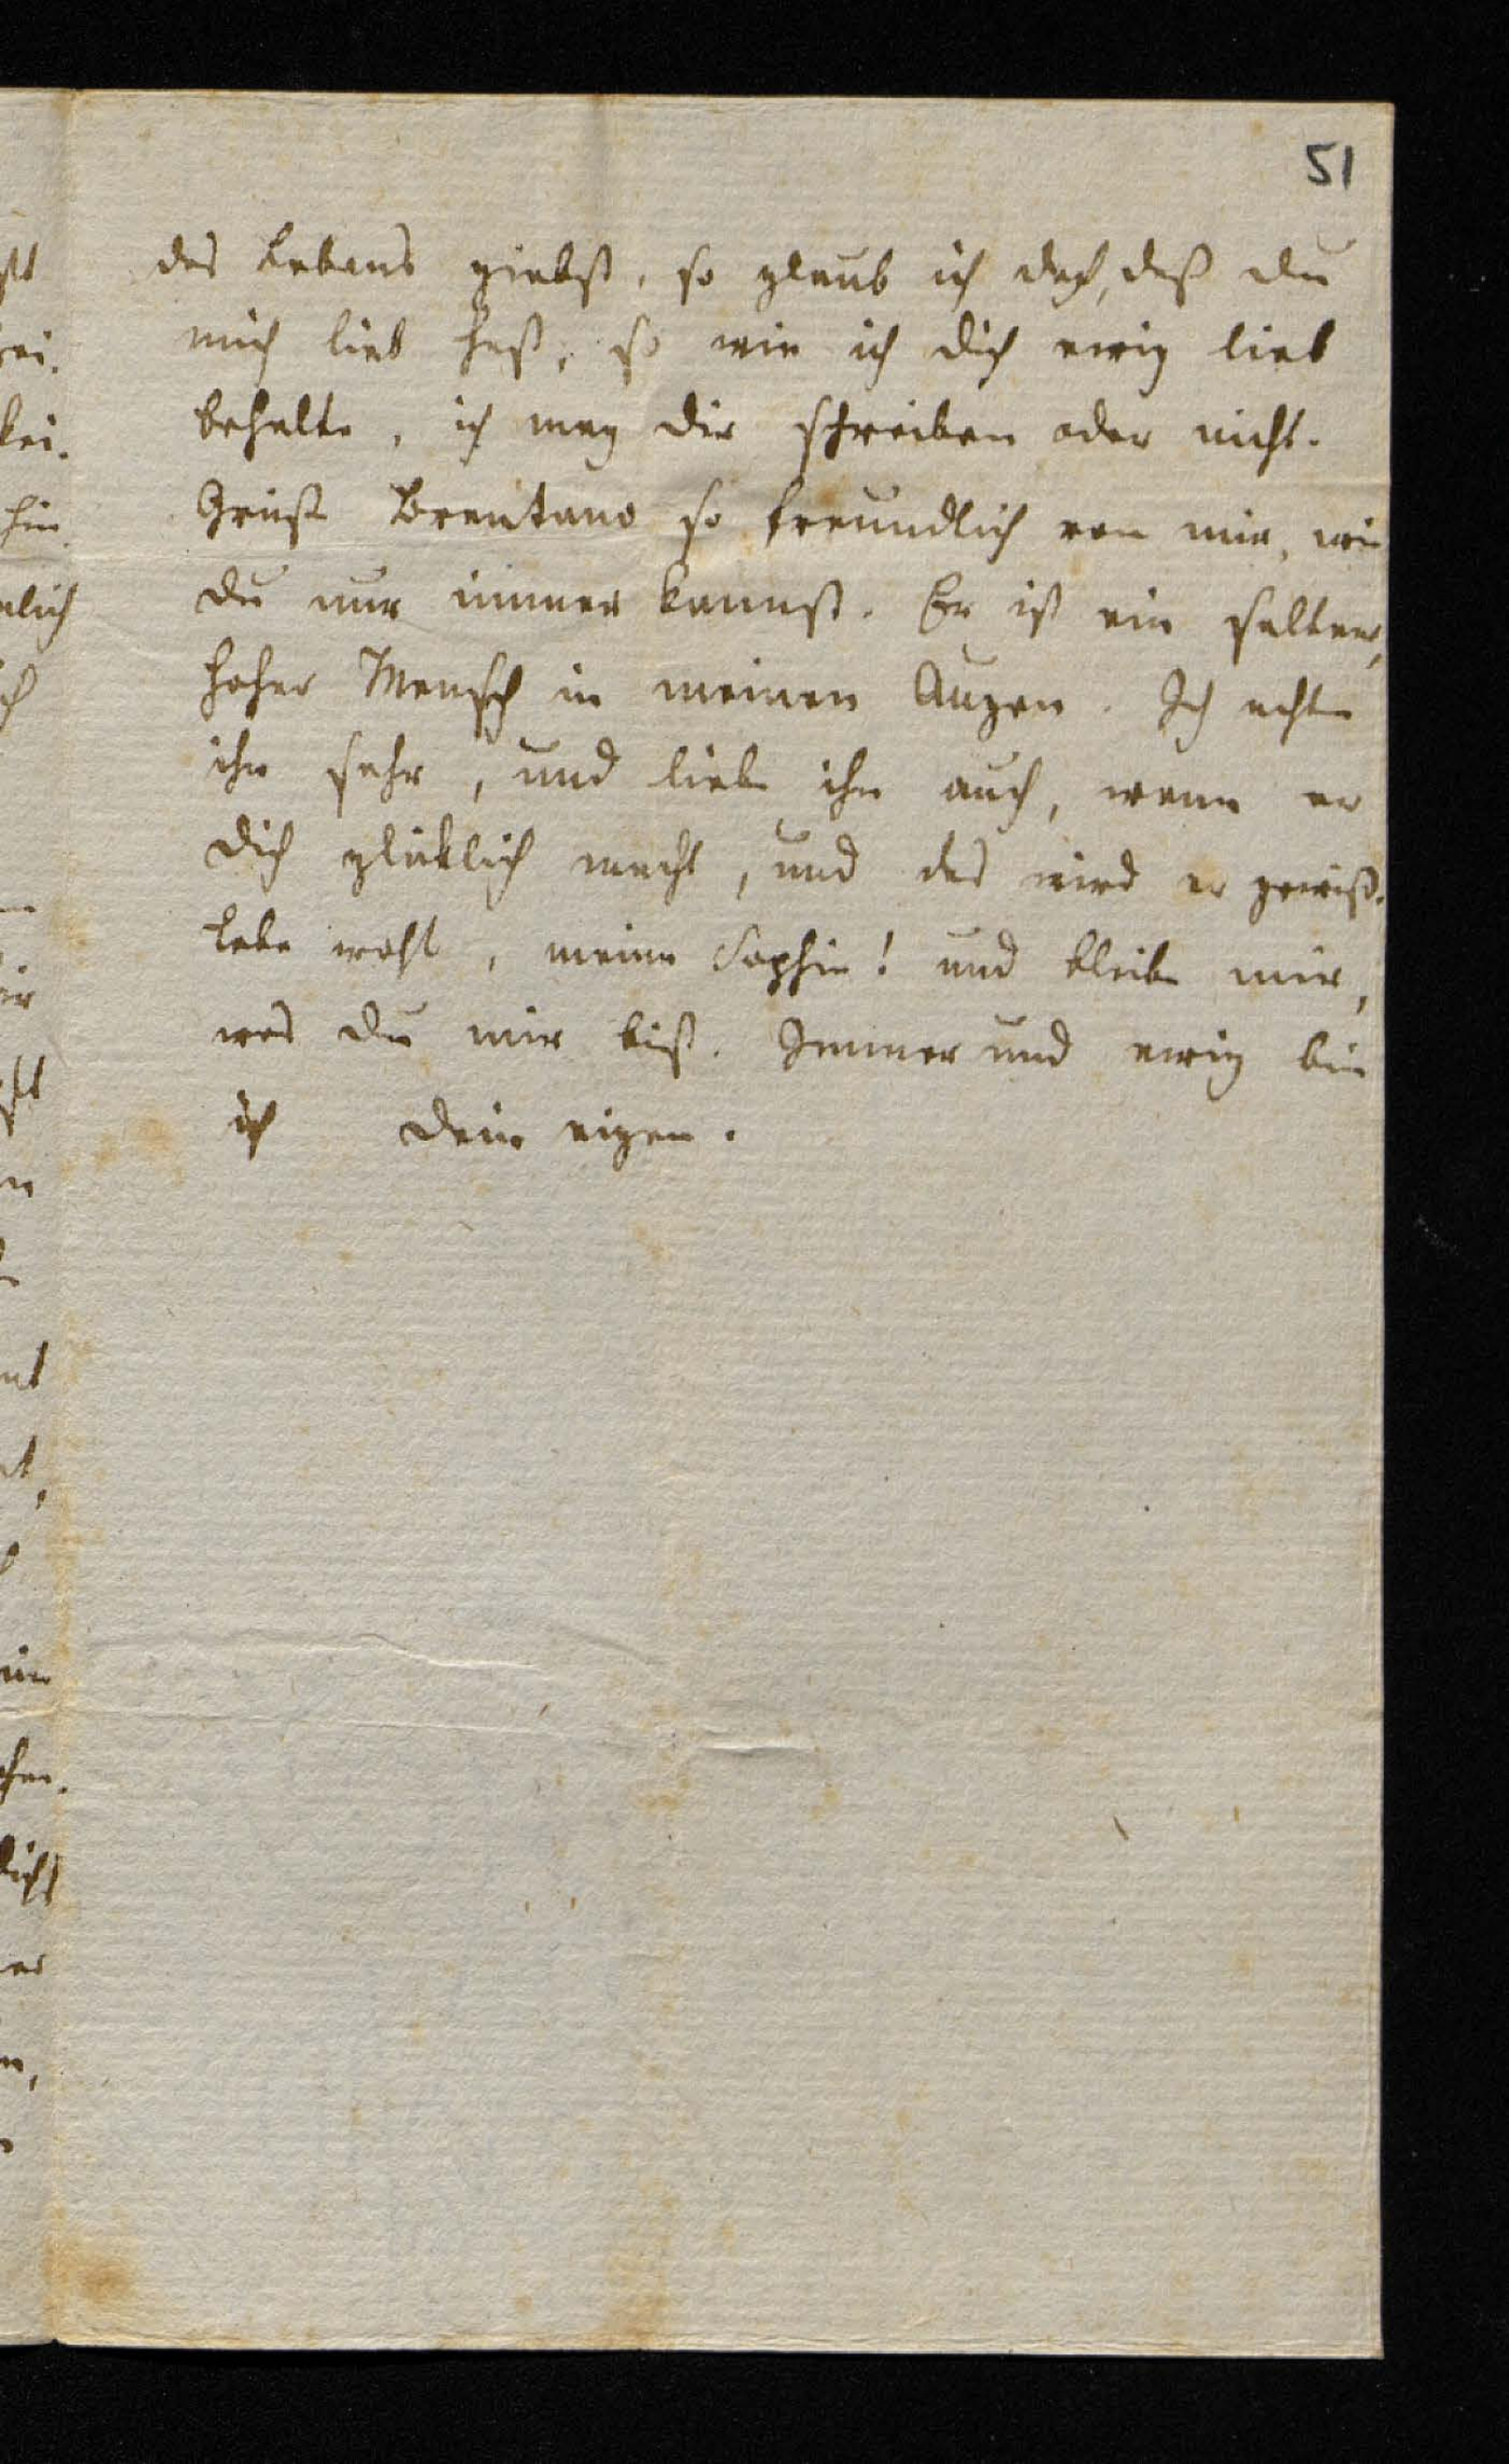 51
des Lebens giebst, so glaub ich doch, daß du
mich lieb hast, so wie ich dich ewig lieb
behalte, ich mag dir schreiben oder nicht.
Grüße Brentano so freundlich von mir, wie
du nur immer kannst. Er ist ein seltner,
hoher Mensch in meinen Augen. Ich achte
ihn sehr, und liebe ihn auch, wenn er
dich glüklich macht, und das wird er gewiß.
Lebe wohl, meine Sophie! und bleibe mir,
was du mir bist. Immer und ewig bin
ich dein eigen.